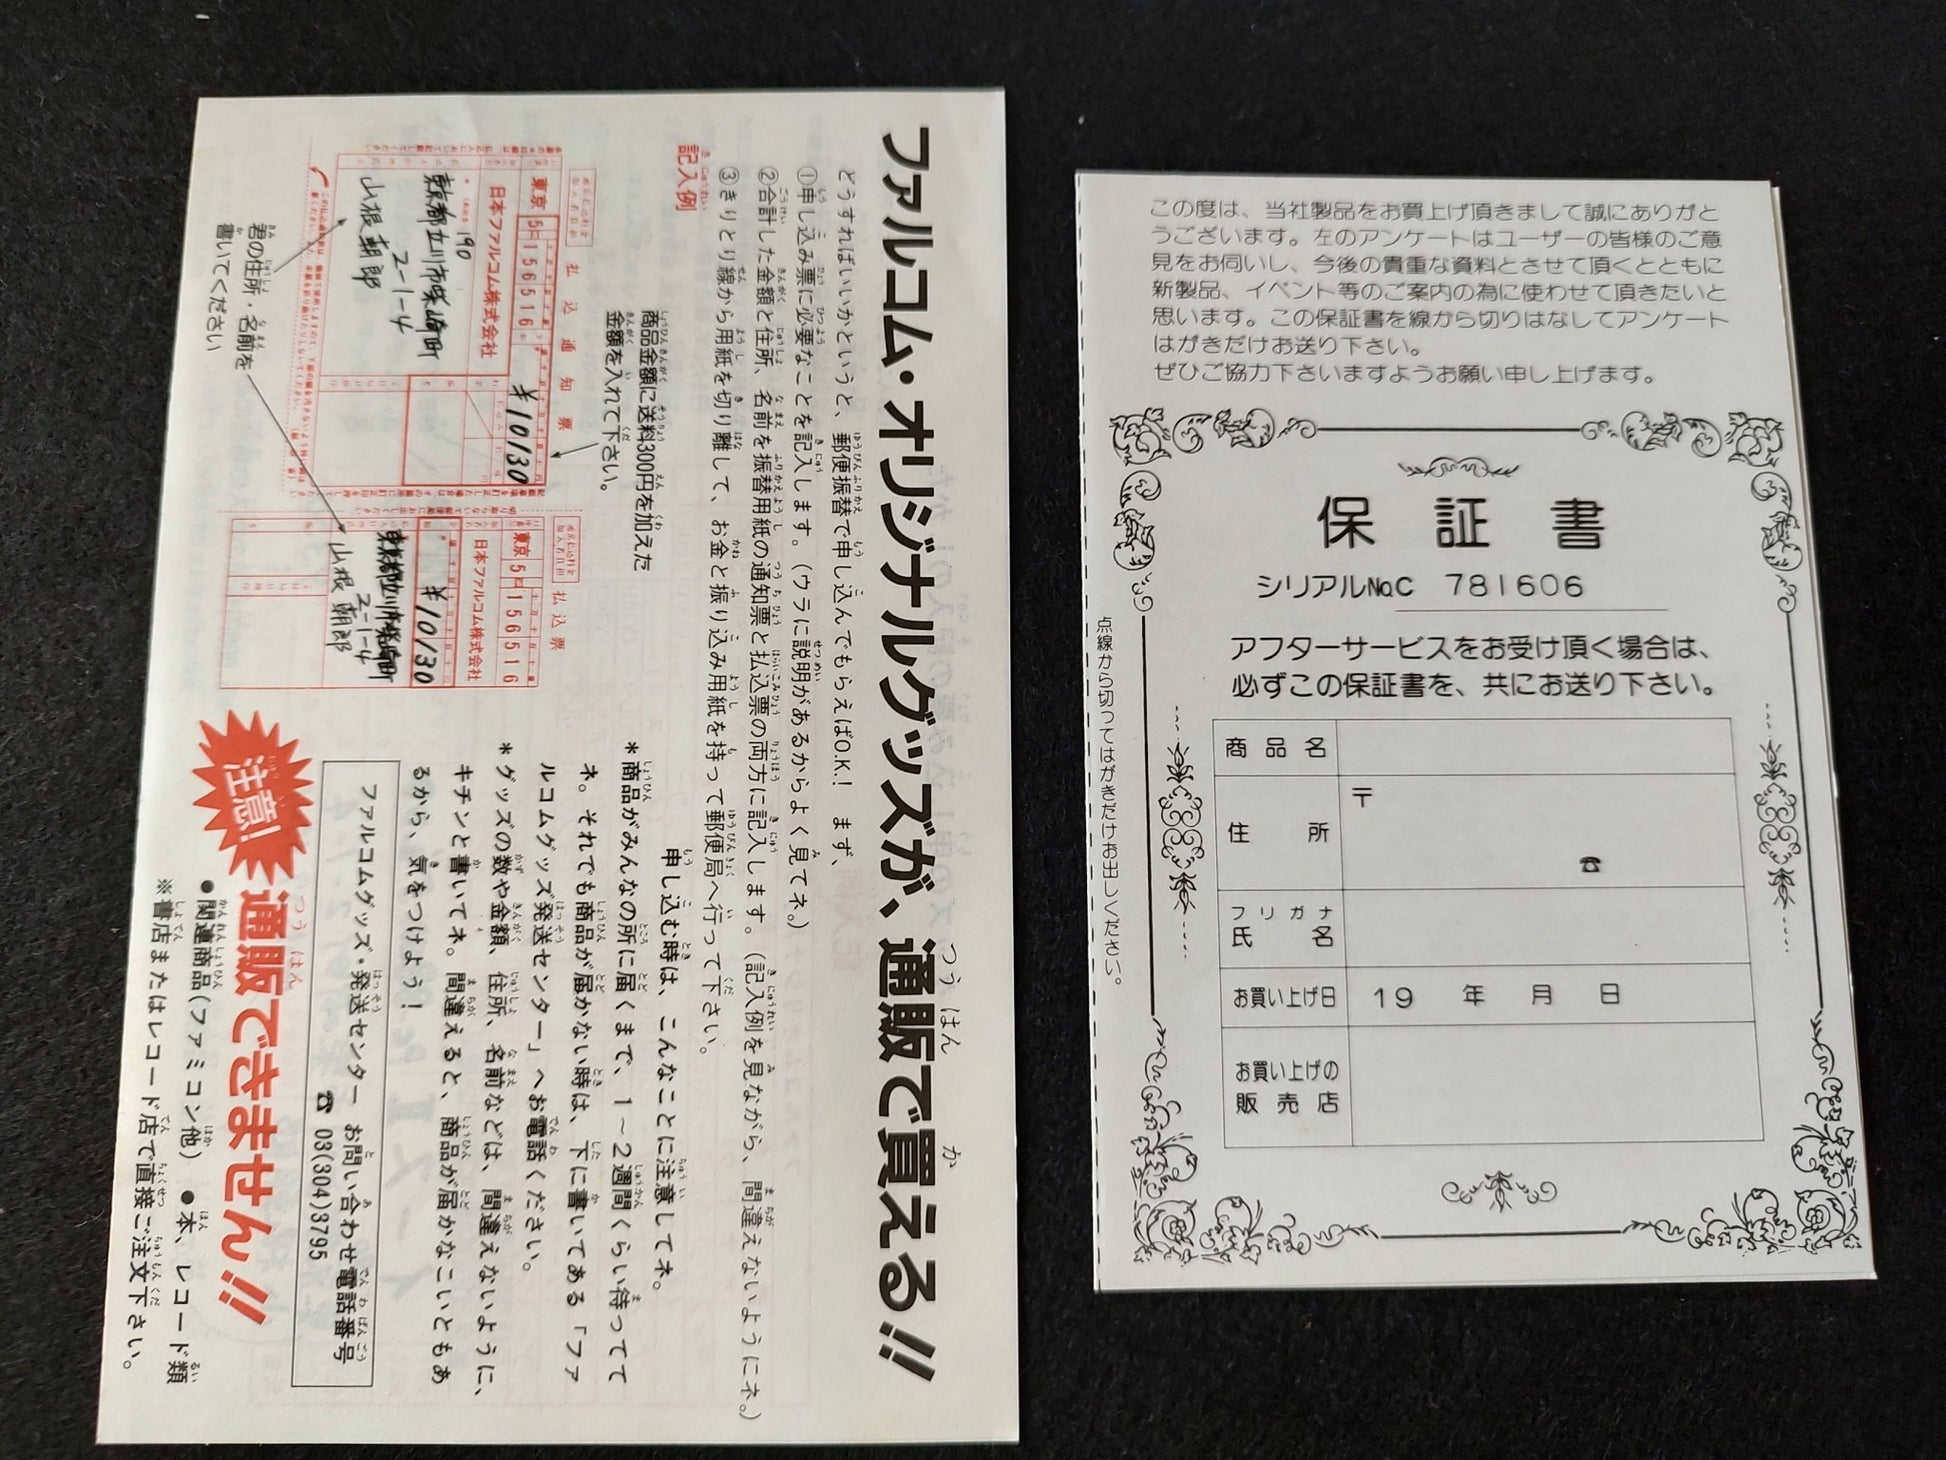 ファルコム・オリジナルグッズが、通販で買える!!
どうすればいいかというと、郵便振替で申し込んでもらえばO.K.! まず、
①申し込み票に必要なことを記入します。(ウラに説明があるからよく見てネ。)
②合計した金額と住所、名前を振替用紙の通知票と払込票の両方に記入します。(記入例を見ながら、間違えないようにネ。)
③きりとり線から用紙を切り離して、お金と振り込み用紙を持って郵便局へ行って下さい。
記入例
商品金額に送料300円を加えた
金額を入れて下さい。
払込通知票
東京 5 156516
¥10130
日本ファルコム株式会社
190
東京都立川市柴崎町
2-1-4
山根 朝郎
君の住所・名前を
書いてください
払込票
東京 5 156516
日本ファルコム株式会社
¥10130
東京都立川市柴崎町
2-1-4
山根 朝郎
申し込む時は、こんなことに注意してネ。
*商品がみんなの所に届くまで、1~2週間くらい待ってて
ネ。それでも商品が届かない時は、下に書いてある「ファ
ルコムグッズ発送センター」へお電話ください。
*グッズの数や金額、住所、名前などは、間違えないように、
キチンと書いてネ。間違えると、商品が届かなこいともあ
るから、気をつけよう!
ファルコムグッズ・発送センター お問い合わせ電話番号
☎ 03(304)3795
注意!
通販できません!!
●関連商品(ファミコン他) ●本、レコード類
※書店またはレコード店で直接ご注文下さい。
この度は、当社製品をお買上げ頂きまして誠にありがと
うございます。左のアンケートはユーザーの皆様のご意
見をお伺いし、今後の貴重な資料とさせて頂くとともに
新製品、イベント等のご案内の為に使わせて頂きたいと
思います。この保証書を線から切りはなしてアンケート
はがきだけお送り下さい。
ぜひご協力下さいますようお願い申し上げます。
保証書
シリアルNo.C 781606
アフターサービスをお受け頂く場合は、
必ずこの保証書を、共にお送り下さい。
商品名
住所
〒
☎
フリガナ
氏名
お買い上げ日
19 年 月 日
お買い上げの
販売店
点線から切ってはがきだけお出しください。